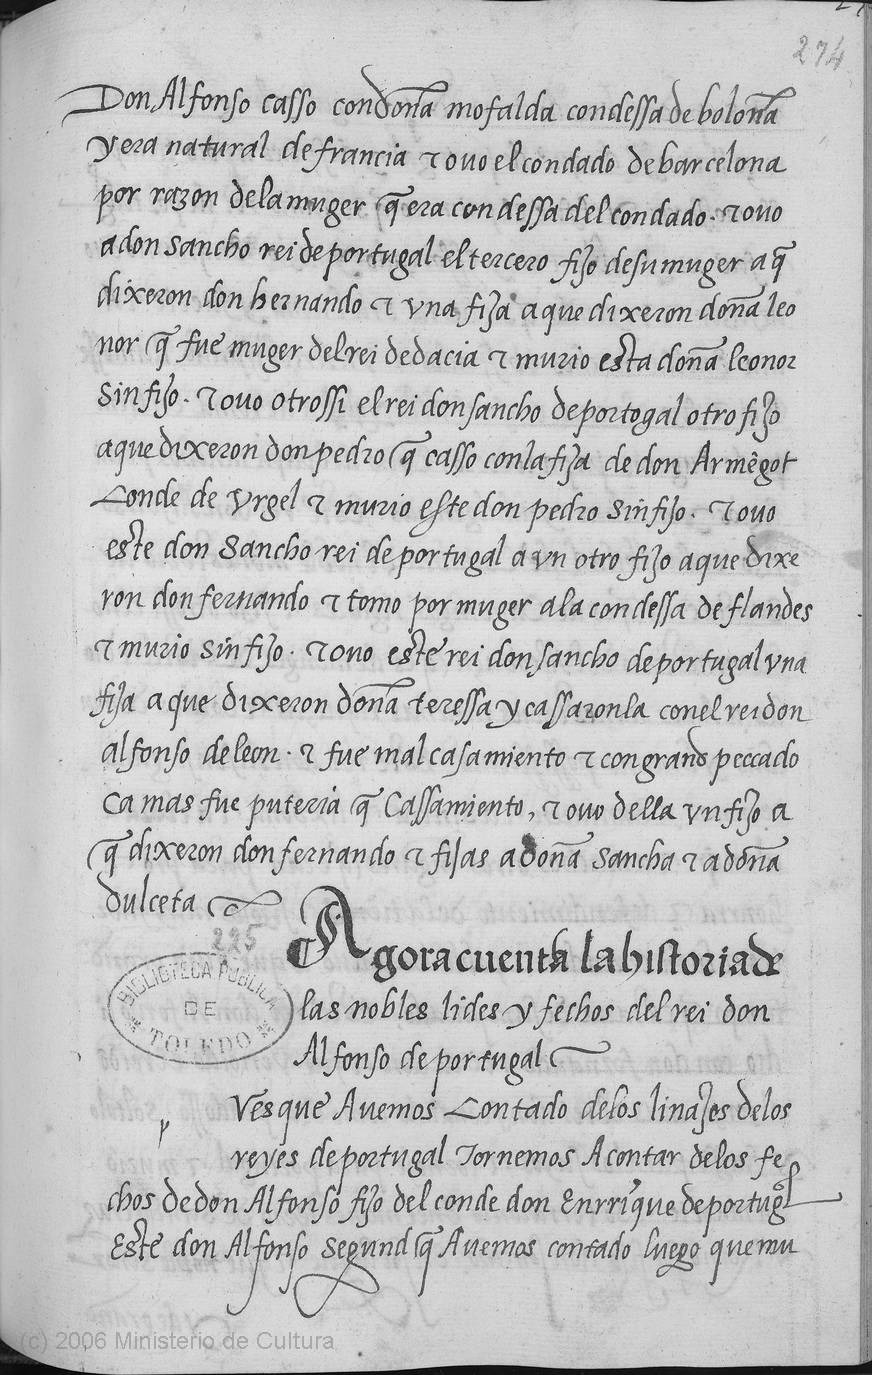 274
Don Alfonso casso con doña mofalda condessa de boloña
y era natural de francia τ ovo el condado de barcelona
por razon dela muger q̃ era condessa del condado. τ ovo
a don sancho rei de portugal el tercero fijo de su muger a q̃
dixeron don hernando τ vna fija a que dixeron doña leo
nor q̃ fue muger del rei de dacia τ murio esta doña leonor
sin fijo. τ ovo otrossi el rei don sancho de portogal otro fijo
a que dixeron don pedro q̃ casso con la fija de don Armẽgot
Conde de Vrgel τ murio este don pedro sin fijo. τ ovo
este don Sancho rei de portugal a vn otro fijo a que dixe
ron don fernando τ tomo por muger a la condessa de flandes
τ murio sin fijo. τ ovo este rei don sancho de portugal vna
fija a que dixeron doña teressa y cassaron la con el rei don
alfonso de leon. τ fue mal casamiento τ con grand peccado
Ca mas fue puteria q̃ Cassamiento, τ ovo della vn fijo a
q̃ dixeron don fernando τ fijas a doña Sancha τ a doña
dulceta
225
Agora cuenta la historia de
las nobles lides y fechos del rei don
Alfonso de portugal
BIBLIOTECA PUBLICA
DE
TOLEDO
p
Ves que Avemos Contado delos linajes delos
reyes de portugal Tornemos A contar delos fe
chos de don Alfonso fijo del conde don Enrrique de portugl
Este don Alfonso segund q̃ Avemos contado luego que mu
(c) 2006 Ministerio de Cultura